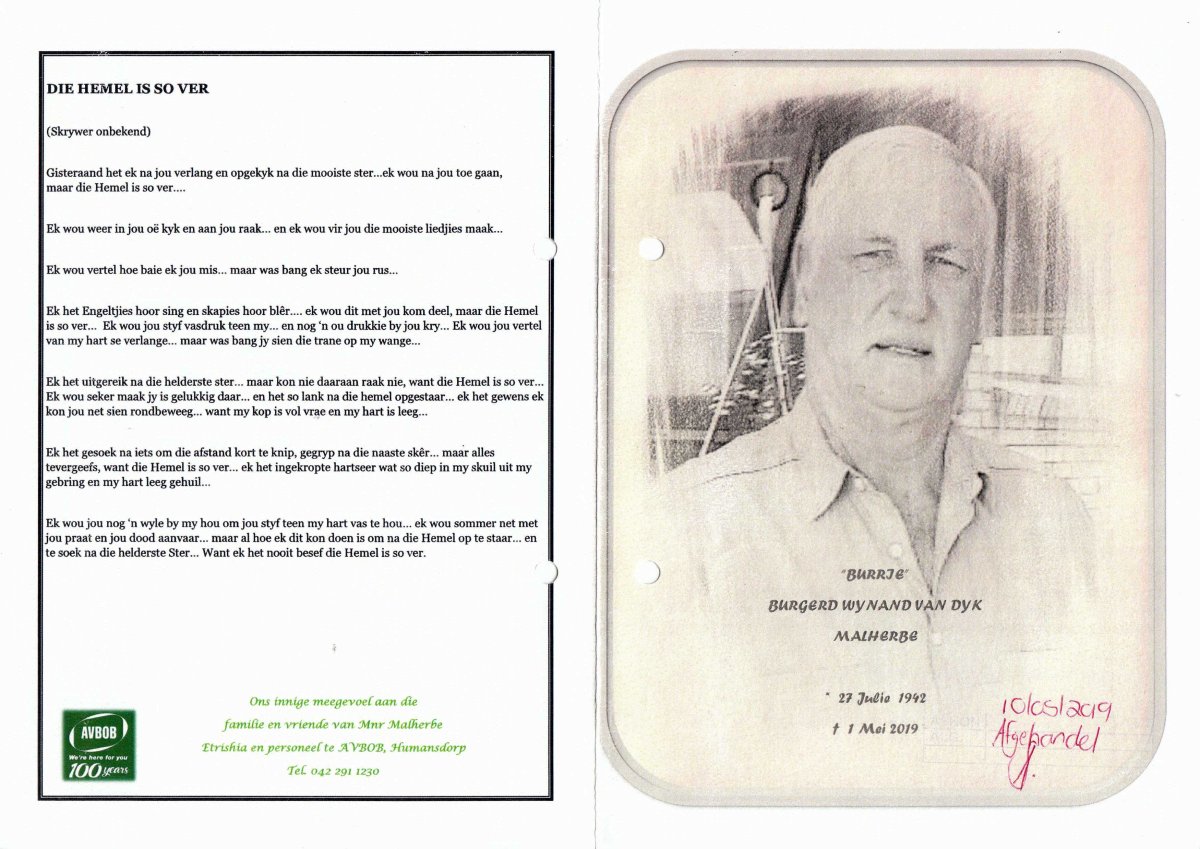 DIE HEMEL IS SO VER
(Skrywer onbekend)
Gisteraand het ek na jou verlang en opgekyk na die mooiste ster...ek wou na jou toe gaan,
maar die Hemel is so ver....
Ek wou weer in jou oë kyk en aan jou raak... en ek wou vir jou die mooiste liedjies maak...
Ek wou vertel hoe baie ek jou mis... maar was bang ek steur jou rus...
Ek het Engeltjies hoor sing en skapies hoor blêr.... ek wou dit met jou kom deel, maar die Hemel
is so ver... Ek wou jou styf vasdruk teen my... en nog 'n ou drukkie by jou kry... Ek wou jou vertel
van my hart se verlange... maar was bang jy sien die trane op my wange...
Ek het uitgereik na die helderste ster... maar kon nie daaraan raak nie, want die Hemel is so ver...
Ek wou seker maak jy is gelukkig daar... en het so lank na die hemel opgestaar... ek het gewens ek
kon jou net sien rondbeweeg... want my kop is vol vrae en my hart is leeg...
Ek het gesoek na iets om die afstand kort te knip, gegryp na die naaste skêr... maar alles
tevergeefs, want die Hemel is so ver... ek het ingekropte hartseer wat so diep in my skuil uit my
gebring en my hart leeg gehuil...
Ek wou jou nog 'n wyle by my hou om jou styf teen my hart vas te hou... ek wou sommer net met
jou praat en jou dood aanvaar... maar al hoe ek dit kon doen is om na die Hemel op te staar... en
te soek na die helderste Ster... Want ek het nooit besef die Hemel is so ver.
AVBOB
We're here for you
100 years
Ons innige meegevoel aan die
familie en vriende van Mnr Malherbe
Etrishia en personeel te AVBOB, Humansdorp
Tel. 042 291 1230
"BURRIE"
BURGERD WYNAND VAN DYK
MALHERBE
* 27 Julie 1942
† 1 Mei 2019
10/05/2019
Afgehandel